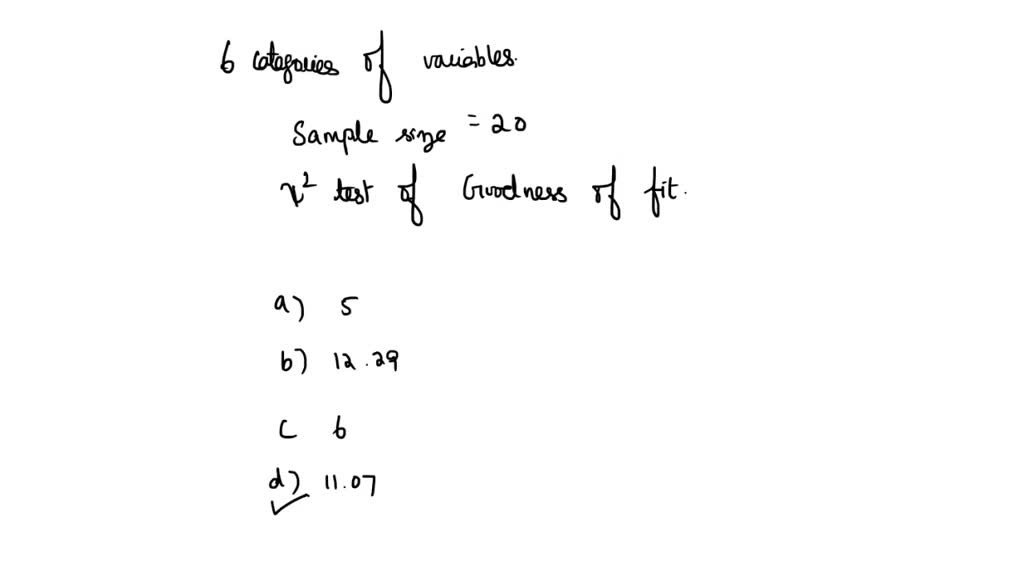 6 categories of variables.
Sample size = 20
χ² test of Goodness of fit.
a) 5
b) 12.29
c 6
d) 11.07